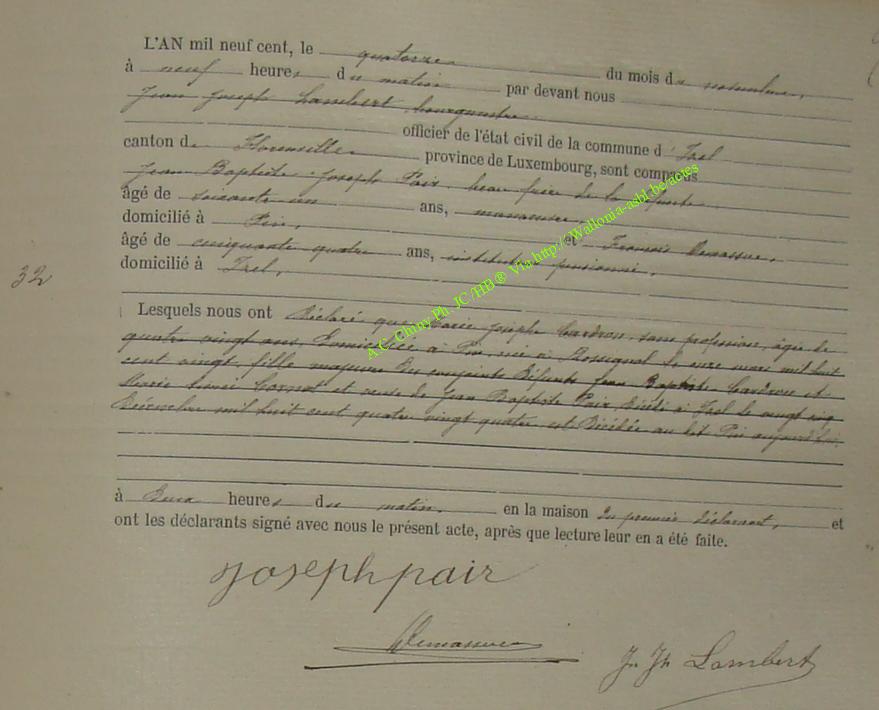 L'AN mil neuf cent, le quatorze du mois de novembre,
à neuf heures du matin par devant nous
Jean Joseph Lambert bourgmestre
officier de l'état civil de la commune d'Izel
canton de Florenville province de Luxembourg, sont comparus
Jean Baptiste Joseph Pair, beau frère de la défunte
âgé de soixante un ans, manoeuvre,
domicilié à Pin, et François Demassue,
âgé de cinquante quatre ans, instituteur pensionné,
domicilié à Izel,
32
Lesquels nous ont déclaré que Marie Joseph Cardron, sans profession, âgée de
quatre vingt ans, domiciliée à Pin, née à Rossignol le onze mars mil huit
cent vingt, fille majeure des conjoints défunts Jean Baptiste Cardron et
Marie Cornet et veuve de Jean Baptiste Pair décédé à Izel le vingt cinq
Décembre mil huit cent quatre vingt quatre est décédée au dit Pin aujourd'hui
à deux heures du matin, en la maison du premier déclarant, et
ont les déclarants signé avec nous le présent acte, après que lecture leur en a été faite.
Joseph pair
Demassue
Jn Jh Lambert
A.C. Chiny Ph. JC/HB® Via http://Wallonia-asbl.be/actes